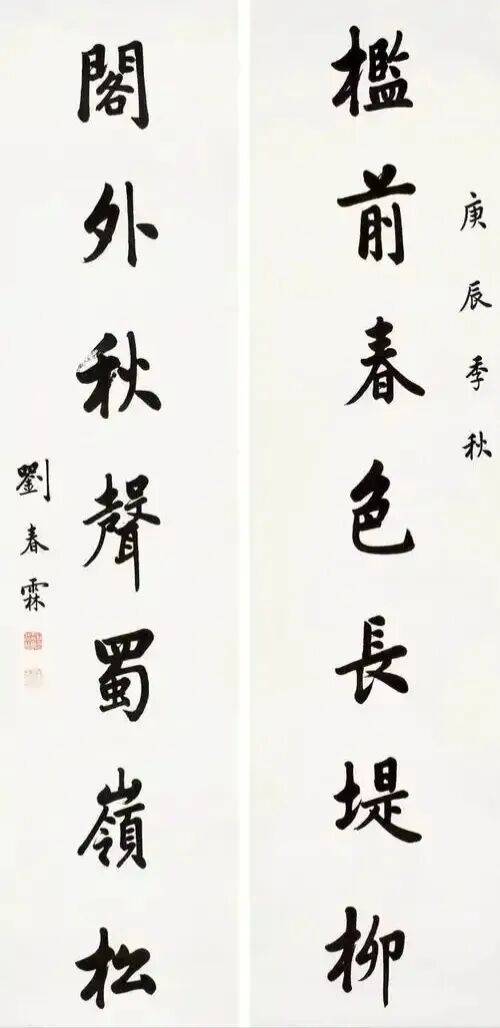 庚辰季秋
檻前春色長堤柳
閣外秋聲蜀嶺松
劉春霖